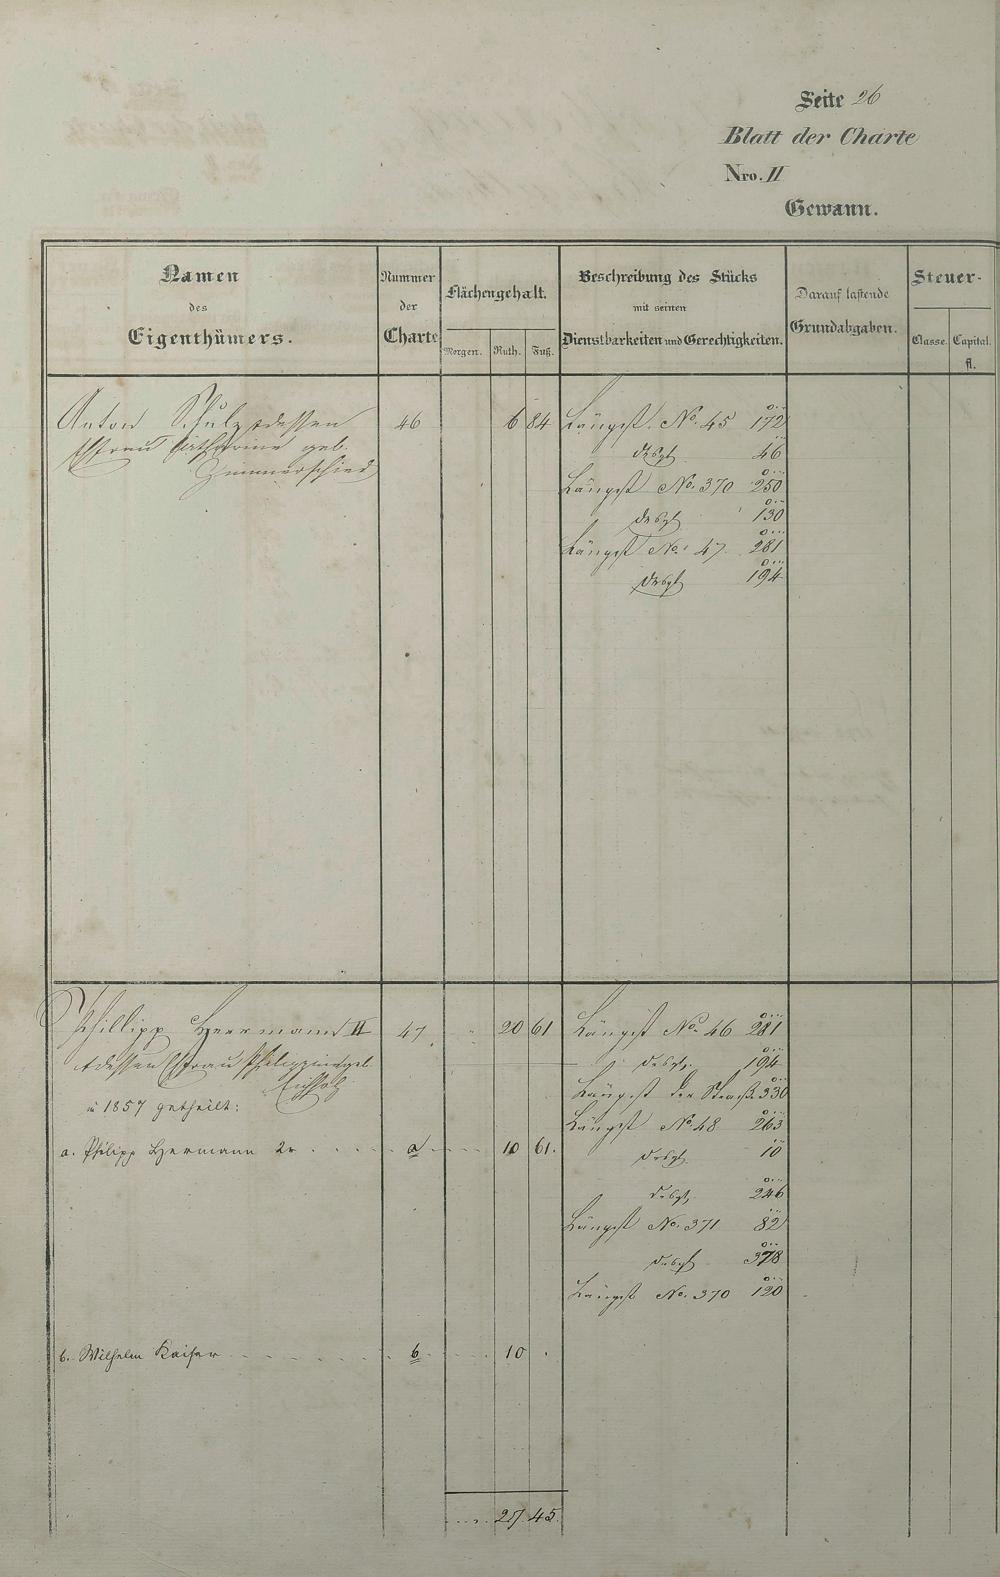 Seite 26
Blatt der Charte
Nro. II
Gewann.
Namen
des
Eigenthümers.
Nummer
der
Charte
Flächengehalt.
Morgen. Ruth. Fuß.
Beschreibung des Stücks
mit seinen
Dienstbarkeiten und Gerechtigkeiten.
Darauf lastende
Grundabgaben.
Steuer-
Classe. Capital.
fl.
Anton Schulz & dessen 46 6 84 Längst. No. 45 172
Ehefrau Catharine geb. desgl 46
Zimmerschied Längst No. 370 250
desgl 130
Längst No. 47 281
desgl 194
Phillipp Heermann II 47 20 61 Längst No. 46 281
& dessen Ehefrau Philippine geb. desgl. 194
Längst der Straße 330
in 1857 getheilt: Längst No 48 263
a. Philipp Hermann 2r a 10 61. desgl. 10
desgl. 246
Längst No. 371 82
desgl 378
Längst No. 370 120
b. Wilhelm Kaiser b 10
27 45